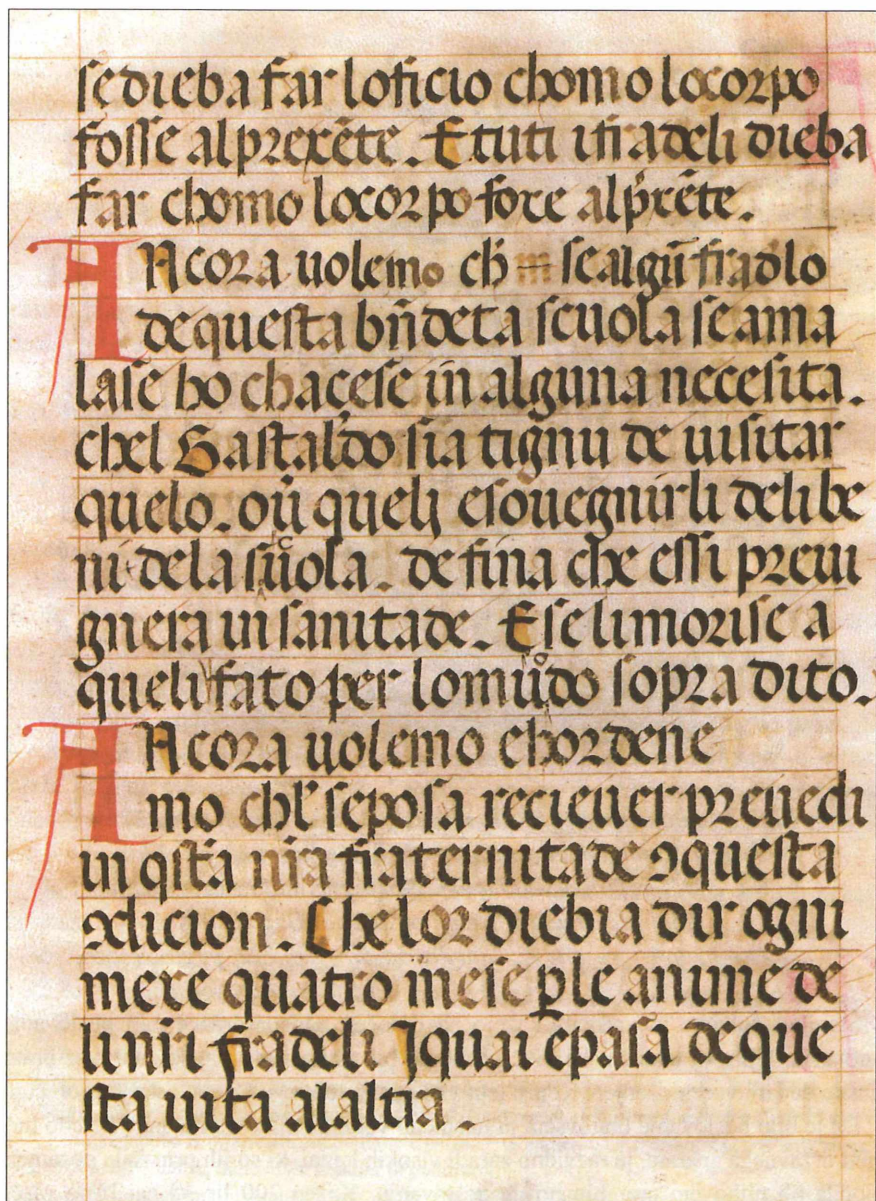 se dieba far loficio chomo locorpo
fosse alprexēte. E tuti ifradeli dieba
far chomo locorpo foxe alp̄xēte.
ANcora uolemo ch̄ se algū fradlo
de questa bn̄deta scuola se ama
lase ho chaçese in alguna necesita.
chel Gastaldo sia tignu de uisitar
quelo. oū queli esouegnirli deli be
ni dela scuola. de fina che essi preui
gnera in sanitade. E se li morise a
queli fato per lomūdo sopra dito.
ANcora uolemo chordene
mo che seposa recieuer preuedi
in q̄sta nr̄a fraternitade ꝯquesta
ꝯdicion. Che lor diebia dir ogni
mexe quatro mese p̱le anime de
li nr̄i fradeli Iquai epasa de que
sta uita alaltra.